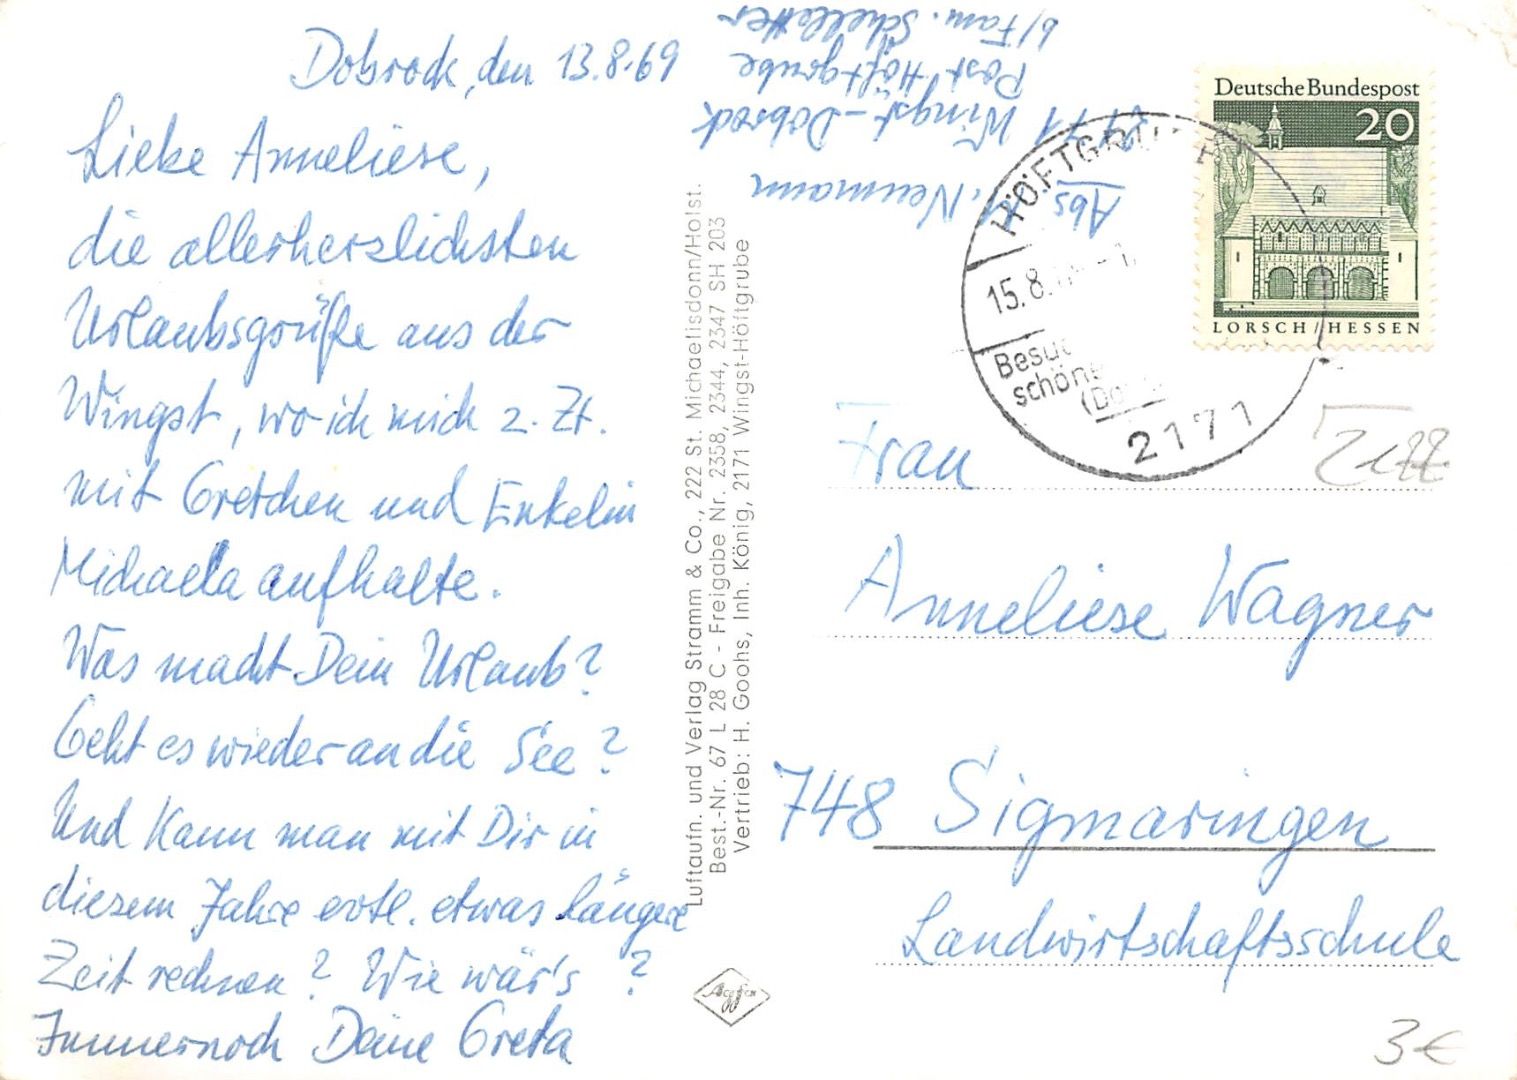 Dobrock, den 13.8.69
Liebe Anneliese,
die allerherzlichsten
Urlaubsgrüße aus der
Wingst, wo ich mich z. Zt.
mit Gretchen und Enkelin
Michaela aufhalte.
Was macht Dein Urlaub?
Geht es wieder an die See?
Und kann man mit Dir in
diesem Jahre evtl. etwas längere
Zeit rechnen? Wie wär's ?
Immernoch Deine Greta
Abs. Neumann
2171 Wingst-Dobrock
Post Höftgrube
b/Fam. Schelletter
Luftaufn. und Verlag Stramm & Co., 222 St. Michaelisdonn/Holst.
Best.-Nr. 67 L 28 C - Freigabe Nr. 2358, 2344, 2347 SH 203
Vertrieb: H. Goohs, Inh. König, 2171 Wingst-Höftgrube
Deutsche Bundespost
20
LORSCH/HESSEN
15.8.
schöne
2171
Frau
Anneliese Wagner
748 Sigmaringen
Landwirtschaftsschule
3€